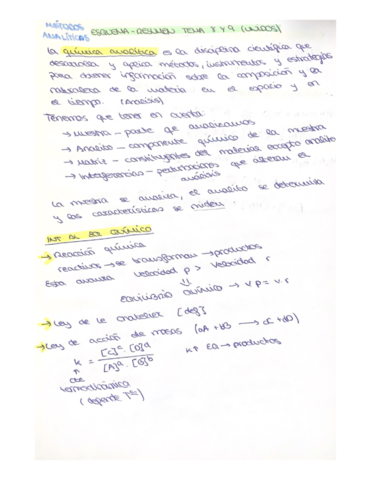 MÉTODOS
ANALÍTICOS ESQUEMA-RESUMEN TEMA 8 Y 9 (UNIDOS)
La química analítica es la disciplina científica que
desarrolla y aplica métodos, instrumentos y estrategias
para obtener información sobre la composición y la
naturaleza de la materia en el espacio y en
el tiempo. (Análisis)
Tenemos que tener en cuenta:
→ Muestra - parte que analizamos
→ Analito - componente químico de la muestra
→ Matriz - constituyentes del material excepto analito
→ Interferencias - perturbaciones que alteran el
análisis
La muestra se analiza, el analito se determina
y las características se miden
INT AL EQ QUÍMICO
→ Reacción química
reactivos → se transforman → productos
Esta avanza velocidad p > velocidad r
⇓
equilibrio químico → v p = v r
→ Ley de le chatelier [deg]
→ Ley de acción de masas (aA + bB → cC + dD)
k = [C]^c [D]^d / [A]^a · [B]^b k↑ EQ → productos
↑
cte
termodinámica
(depende Tª)